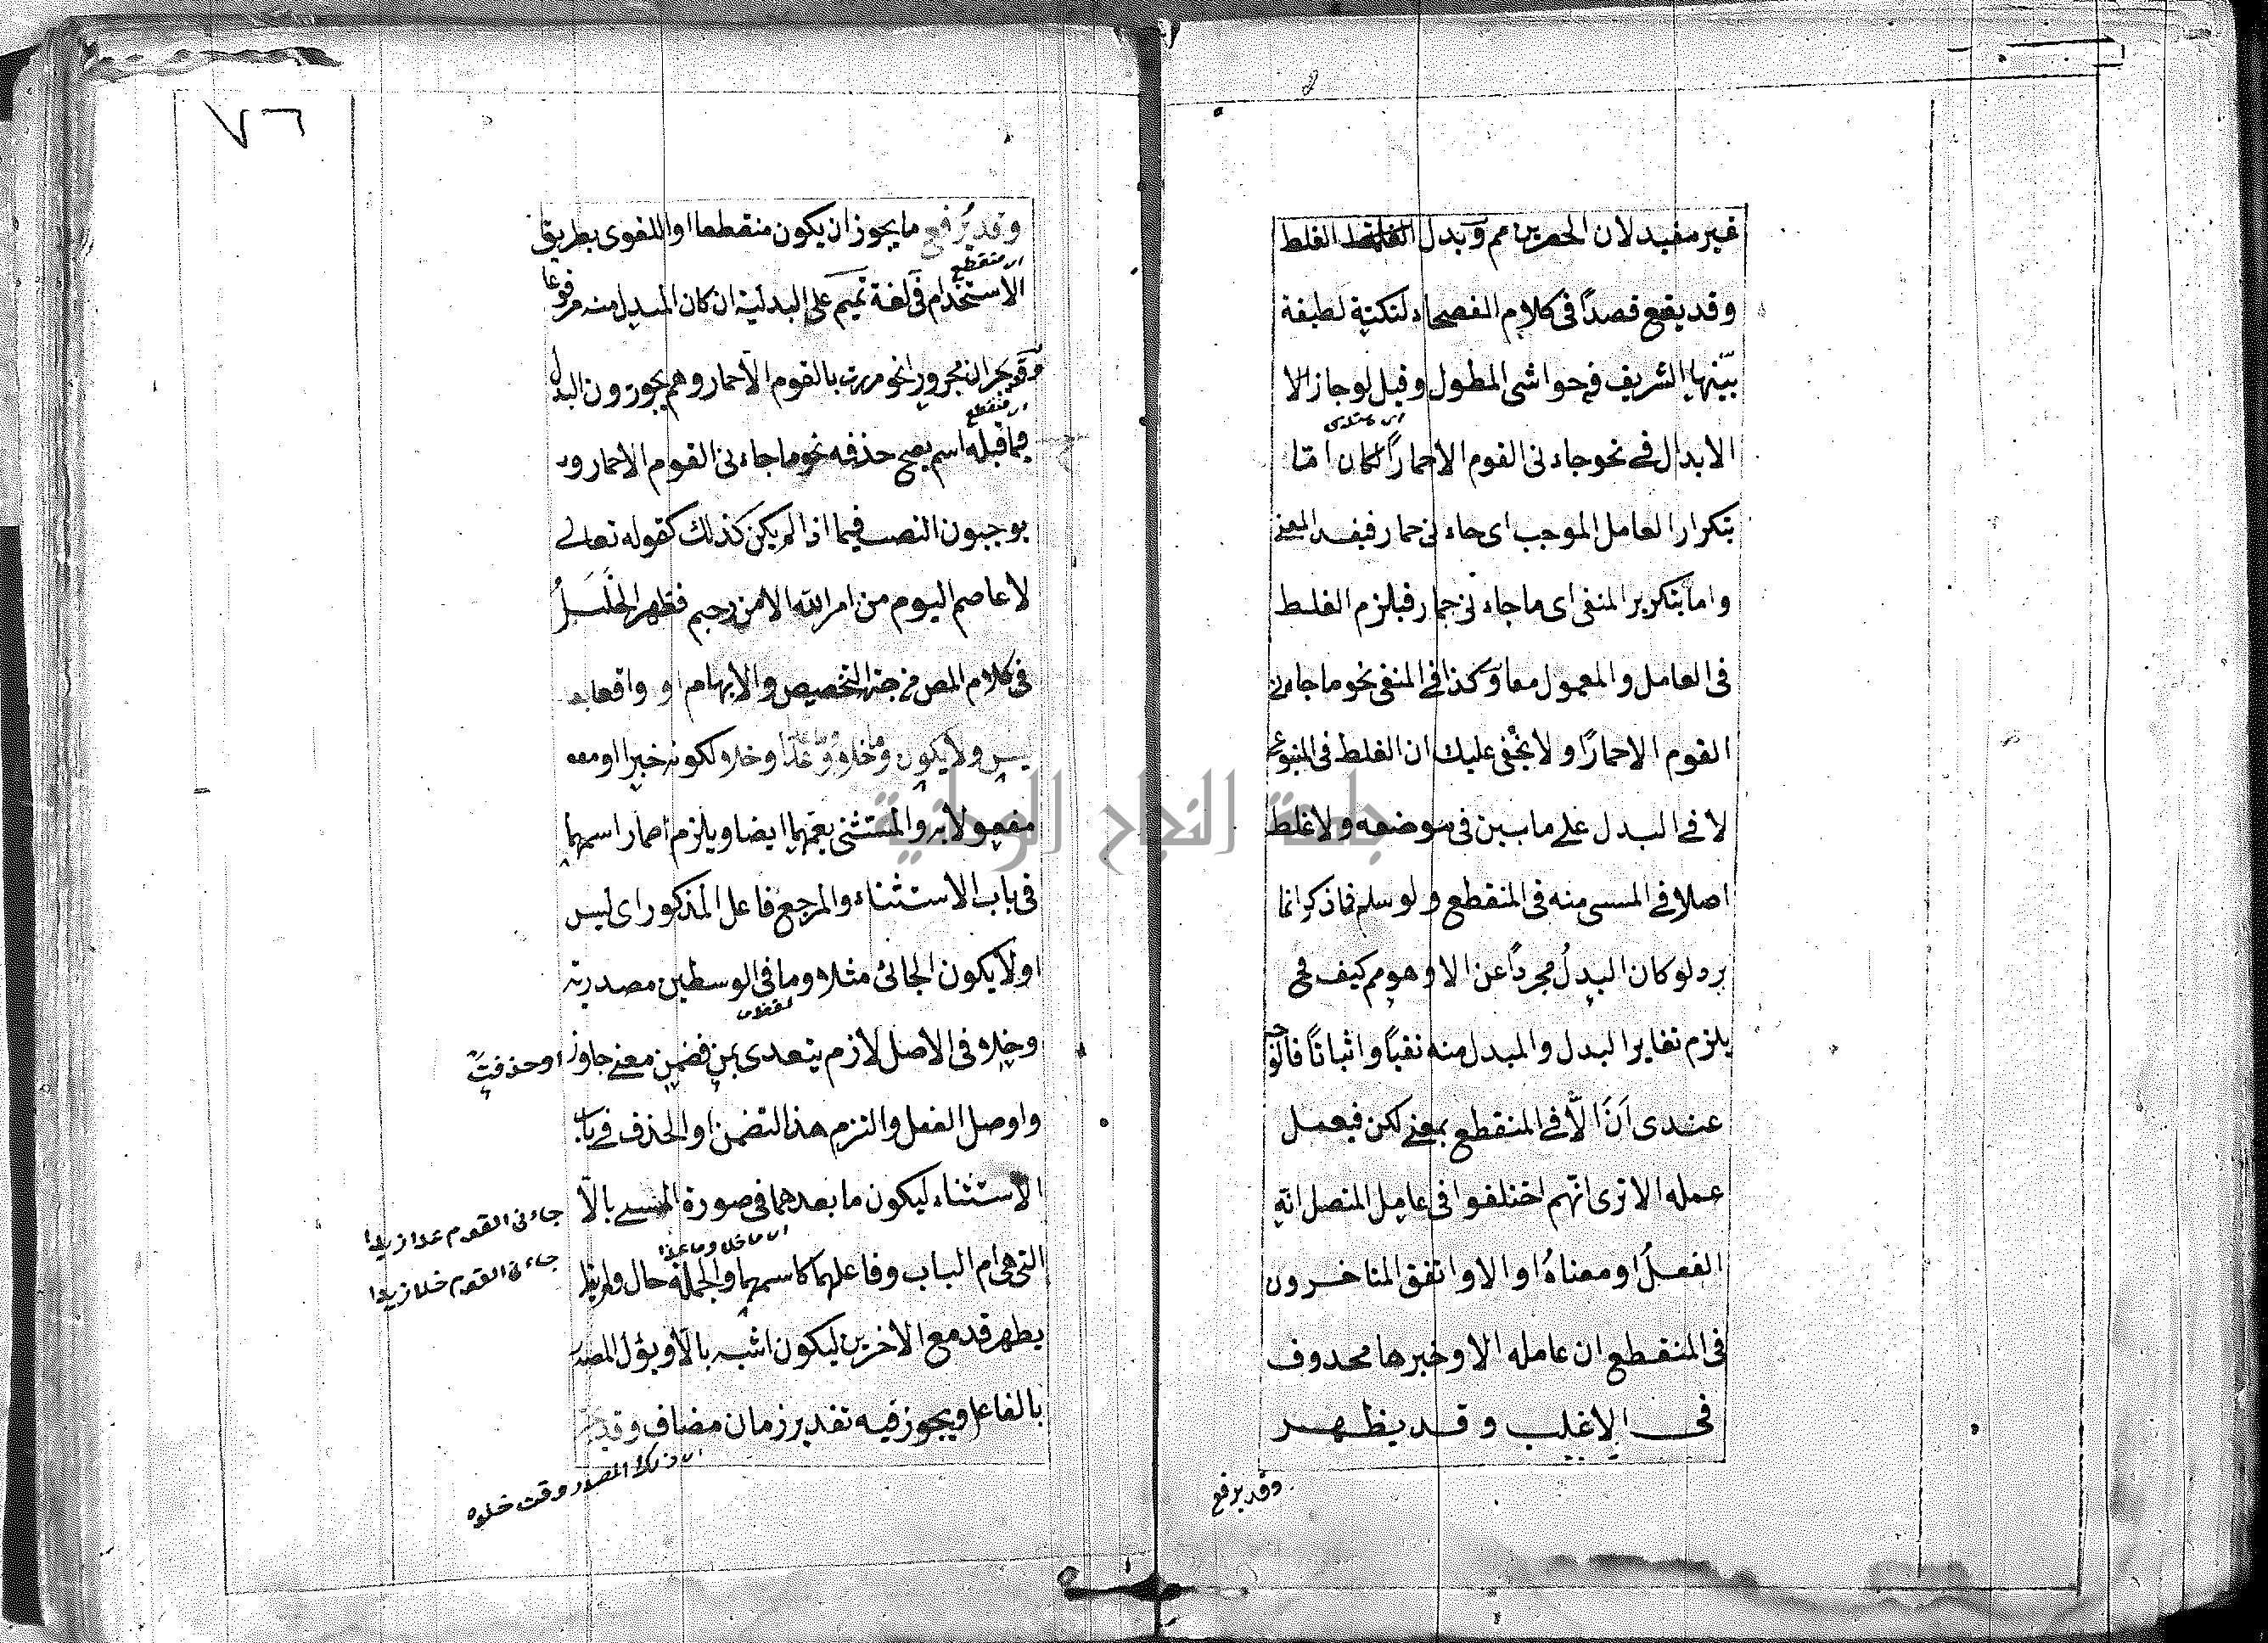 غير مفيد لان الحصرين مم وبدل الغلط الغلط
وقد يقع قصدًا فى كلام الفصحاء لنكتة لطيفة
بيّنها الشريف فى حواشى المطول وقيل لو جاز الا
الابدال فى نحو جاءنى القوم الا حمارًا لكان امّا
بتكرار العامل الموجب اى جاءنى حمار فيفسد المعنى
واما بتكرير المنفى اى ما جاءنى حمار فيلزم الغلط
فى العامل والمعمول معا وكذا فى المنفى نحو ما جاءنى
القوم الا حمارًا ولا يخفى عليك ان الغلط فى المتبوع
لا فى البدل على ما بين فى موضعه ولا غلط
اصلا فى المستثنى منه فى المنقطع ولو سلم فما ذكر انما
يرد لو كان البدلُ مجردًا عن الا وهو مم كيف فى
يلزم تغاير البدل والمبدل منه نفيًا واثباتًا فالوجه
عندى انّ الّا فى المنقطع بمعنى لكن فيعمل
عمله الا ترى انّهم اختلفوا فى عامل المتصل انه
الفعلُ او معناهُ او الا واتفق المتاخرون
فى المنقطع ان عامله الا وخبرها محذوف
فى الاغلب وقد يظهر
وقد يرفع
٧٦
وقد يُرفع ما يجوز ان يكون منقطعا او اللغوى بطريق
اى منقطع
الاستخدام فى لغة تميم على البدلية ان كان المبدل منه مرفوعا
وقد يجر ان مجرورا نحو مررت بالقوم الا حمار وهم يجوزون البدل
اى منقطع
فيما قبله اسم يصح حذفه نحو ما جاءنى القوم الا حمار و
يوجبون النصب فيما اذا لم يكن كذلك كقوله تعالى
لا عاصم اليوم من امر الله الا من رحم فظهر الخَلَلُ
فى كلام المص من جهة التخصيص والابهام او واقعا بعد
ليس ولا يكون وما خلا وما عدا وخلا لكونه خبرا او معه
مفعولا به والمستثنى يعمهما ايضا ويلزم اضمار اسمهما
فى باب الاستثناء والمرجع فاعل المذكور اى ليس
او لا يكون الجائى مثلا وما فى الوسطين مصدرية
وخلا فى الاصل لازم يتعدى بمن فضمن معنى جاوز او حذفت
واوصل الفعل والتزم هذا التضمن او الحذف فى باب
الاستثناء ليكون ما بعدهما فى صورة المستثنى بالّا
جاءنى القوم عدا زيدا
جاءنى القوم خلا زيدا
اى ما خلا وما عدا
التى هى ام الباب وفاعلهما كاسمهما والجملة حال ولم
يظهر قد مع الاخرين ليكون اشبه بالّا ويؤل المصدر
بالفاعل ويجوز فيه تقدير زمان مضاف وقد
المصدر وقت خلوه
جامعة النجاح الوطنية